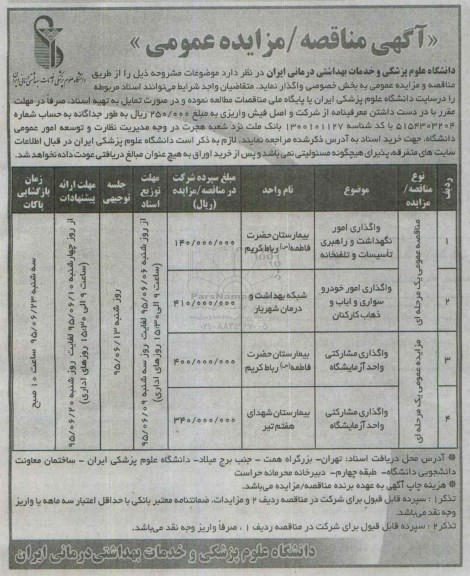 «آگهی مناقصه/مزایده عمومی»
دانشگاه علوم پزشکی و خدمات بهداشتی درمانی ایران
دانشگاه علوم پزشکی و خدمات بهداشتی درمانی ایران در نظر دارد موضوعات مشروحه ذیل را از طریق
مناقصه و مزایده عمومی به بخش خصوصی واگذار نماید. متقاضیان واجد شرایط می‌توانند اسناد مربوطه
را در سایت دانشگاه علوم پزشکی ایران یا پایگاه ملی مناقصات مطالعه نموده و در صورت تمایل به تهیه اسناد، صرفاً در مهلت
مقرر با در دست داشتن معرفینامه از شرکت و اصل فیش واریزی به مبلغ ۲۵۰/۰۰۰ ریال به طور جداگانه به حساب شماره
۵۱۵۴۳۰۳۲۰۴ با کد شناسه ۱۳۰۰۱۰۱۱۲۷ بانک ملت نزد شعبه هجرت در وجه مدیریت نظارت و توسعه امور عمومی
دانشگاه، جهت خرید اسناد به آدرس ذکر شده مراجعه نمایند. لازم به ذکر است دانشگاه علوم پزشکی ایران در قبال اطلاعات
سایت های متفرقه، پذیرای هیچگونه مسئولیتی نمی باشد و پس از خرید اوراق به هیچ عنوان مبالغ دریافتی عودت داده نخواهد شد.
ردیف
نوع مناقصه/مزایده
موضوع
نام واحد
مبلغ سپرده شرکت در مناقصه/مزایده (ریال)
مهلت توزیع اسناد
جلسه توجیهی
مهلت ارائه پیشنهادات
زمان بازگشایی پاکات
۱
مناقصه عمومی یک مرحله ای
واگذاری امور نگهداشت و راهبری تأسیسات و تلفنخانه
بیمارستان حضرت فاطمه(س) رباط کریم
۱۴۰/۰۰۰/۰۰۰
از روز شنبه ۹۵/۰۶/۰۶ لغایت روز سه شنبه ۹۵/۰۶/۰۹ (ساعت ۹ الی ۱۵:۳۰ روزهای اداری)
روز شنبه ۹۵/۰۶/۱۳
از روز چهارشنبه ۹۵/۰۶/۱۰ لغایت روز شنبه ۹۵/۰۶/۲۰ (ساعت ۹ الی ۱۵:۳۰ روزهای اداری)
سه شنبه ۹۵/۰۶/۲۳ ساعت ۱۰ صبح
۲
واگذاری امور خودرو سواری و ایاب و ذهاب کارکنان
شبکه بهداشت و درمان شهریار
۴۱۰/۰۰۰/۰۰۰
۳
مزایده عمومی یک مرحله ای
واگذاری مشارکتی واحد آزمایشگاه
بیمارستان حضرت فاطمه(س) رباط کریم
۴۰۰/۰۰۰/۰۰۰
۴
واگذاری مشارکتی واحد آزمایشگاه
بیمارستان شهدای هفتم تیر
۳۴۰/۰۰۰/۰۰۰
* آدرس محل دریافت اسناد: تهران- بزرگراه همت - جنب برج میلاد- دانشگاه علوم پزشکی ایران - ساختمان معاونت
دانشجویی دانشگاه- طبقه چهارم- دبیرخانه محرمانه حراست
* هزینه چاپ آگهی به عهده برنده مناقصه/مزایده می‌باشد.
تذکر۱ : سپرده قابل قبول برای شرکت در مناقصه ردیف ۲ و مزایدات، ضمانتنامه معتبر بانکی با حداقل اعتبار سه ماهه یا واریز
وجه نقد می‌باشد.
تذکر۲ : سپرده قابل قبول برای شرکت در مناقصه ردیف ۱ ، صرفاً واریز وجه نقد می‌باشد.
دانشگاه علوم پزشکی و خدمات بهداشتی درمانی ایران